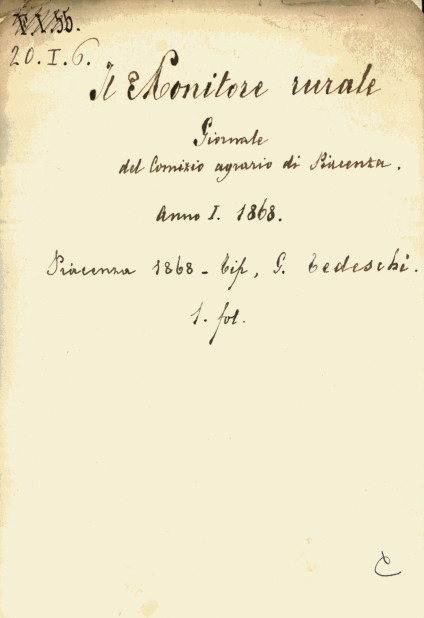 20.I.6.
Il Monitore rurale
Giornale
del Comizio agrario di Piacenza.
Anno I. 1868.
Piacenza 1868 - Tip, G. Tedeschi.
1. fol.